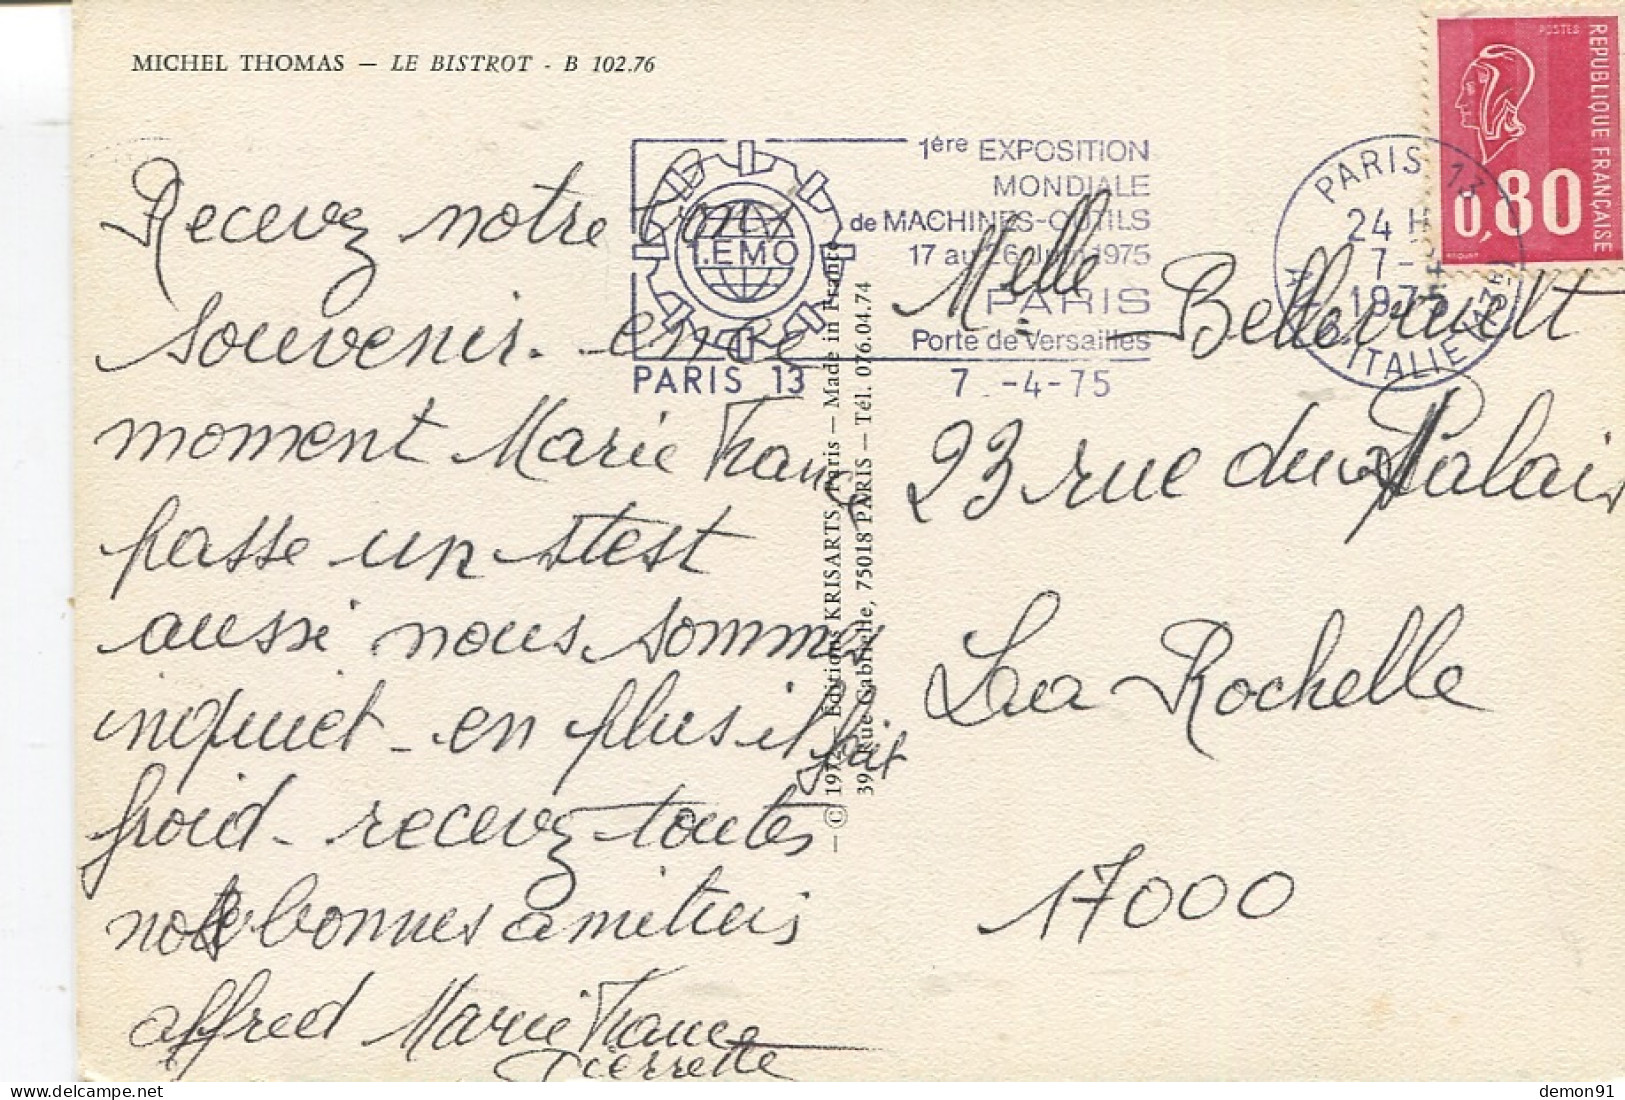 MICHEL THOMAS — LE BISTROT - B 102.76
Recevez notre bons
souvenir. en ce
moment Marie France
passe un stest
aussi nous sommes
inquiet - en plus il fait
froid - recevez toutes
nos bonnes amitiés
affred Marie France
Pierrette
1ère EXPOSITION
MONDIALE
de MACHINES-OUTILS
17 au 26 Juin 1975
PARIS
Porte de Versailles
1.EMO
PARIS 13
7 -4-75
PARIS 13
24 H
7-4
1975
ITALIE (13E)
POSTES
REPUBLIQUE FRANÇAISE
0,80
— © 197 — Editions KRISARTS Paris — Made in France
39, Rue Gabrielle, 75018 PARIS — Tél. 076.04.74
Melle Bellevault
23 rue du Palais
La Rochelle
17000
demon91